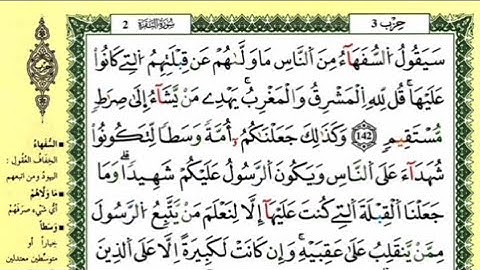 حِزْب 3
سُورَةُ الْبَقَرَةِ 2
سَيَقُولُ اُ۬لسُّفَهَآءُ مِنَ اَ۬لنَّاسِ مَا وَلَّىٰهُمْ عَن قِبْلَتِهِمُ اُ۬لتِے كَانُواْ
عَلَيْهَاۖ قُل لِّلهِ اِ۬لْمَشْرِقُ وَالْمَغْرِبُۖ يَهْدِے مَنْ يَّشَآءُ إِلَىٰ صِرَٰطٖ
مُّسْتَقِيمٖۖ 142 وَكَذَٰلِكَ جَعَلْنَٰكُمُۥٓ أُمَّةٗ وَسَطاٗ لِّتَكُونُواْ
شُهَدَآءَ عَلَى اَ۬لنَّاسِ وَيَكُونَ اَ۬لرَّسُولُ عَلَيْكُمْ شَهِيداٗۖ وَمَا
جَعَلْنَا اَ۬لْقِبْلَةَ اَ۬لتِے كُنتَ عَلَيْهَآ إِلَّا لِنَعْلَمَ مَنْ يَّتَّبِعُ اُ۬لرَّسُولَ
مِمَّنْ يَّنقَلِبُ عَلَىٰ عَقِبَيْهِۖ وَإِن كَانَتْ لَكَبِيرَةً اِلَّا عَلَى اَ۬لذِينَ
حزب
السُّفَهَاءُ
الخِفَافُ العُقُولِ :
اليهودُ ومن اتبعهم
مَا وَلَّاهُمْ
أيُّ شيءٍ صَرَفَهُمْ
وَسَطاً
خياراً أو
متوسِّطين معتدلين